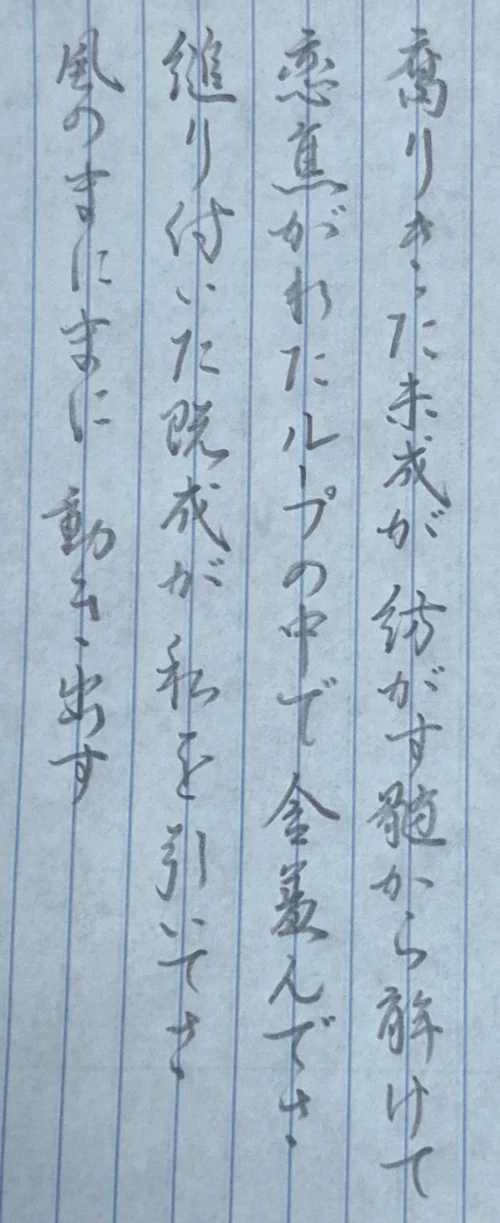 腐りきた未成が 紡がす髄から解けて
恋焦がれたループの中で 含羞んでさ
縋り付いた既成が 私を引いてさ
風のまにまに 動き出す